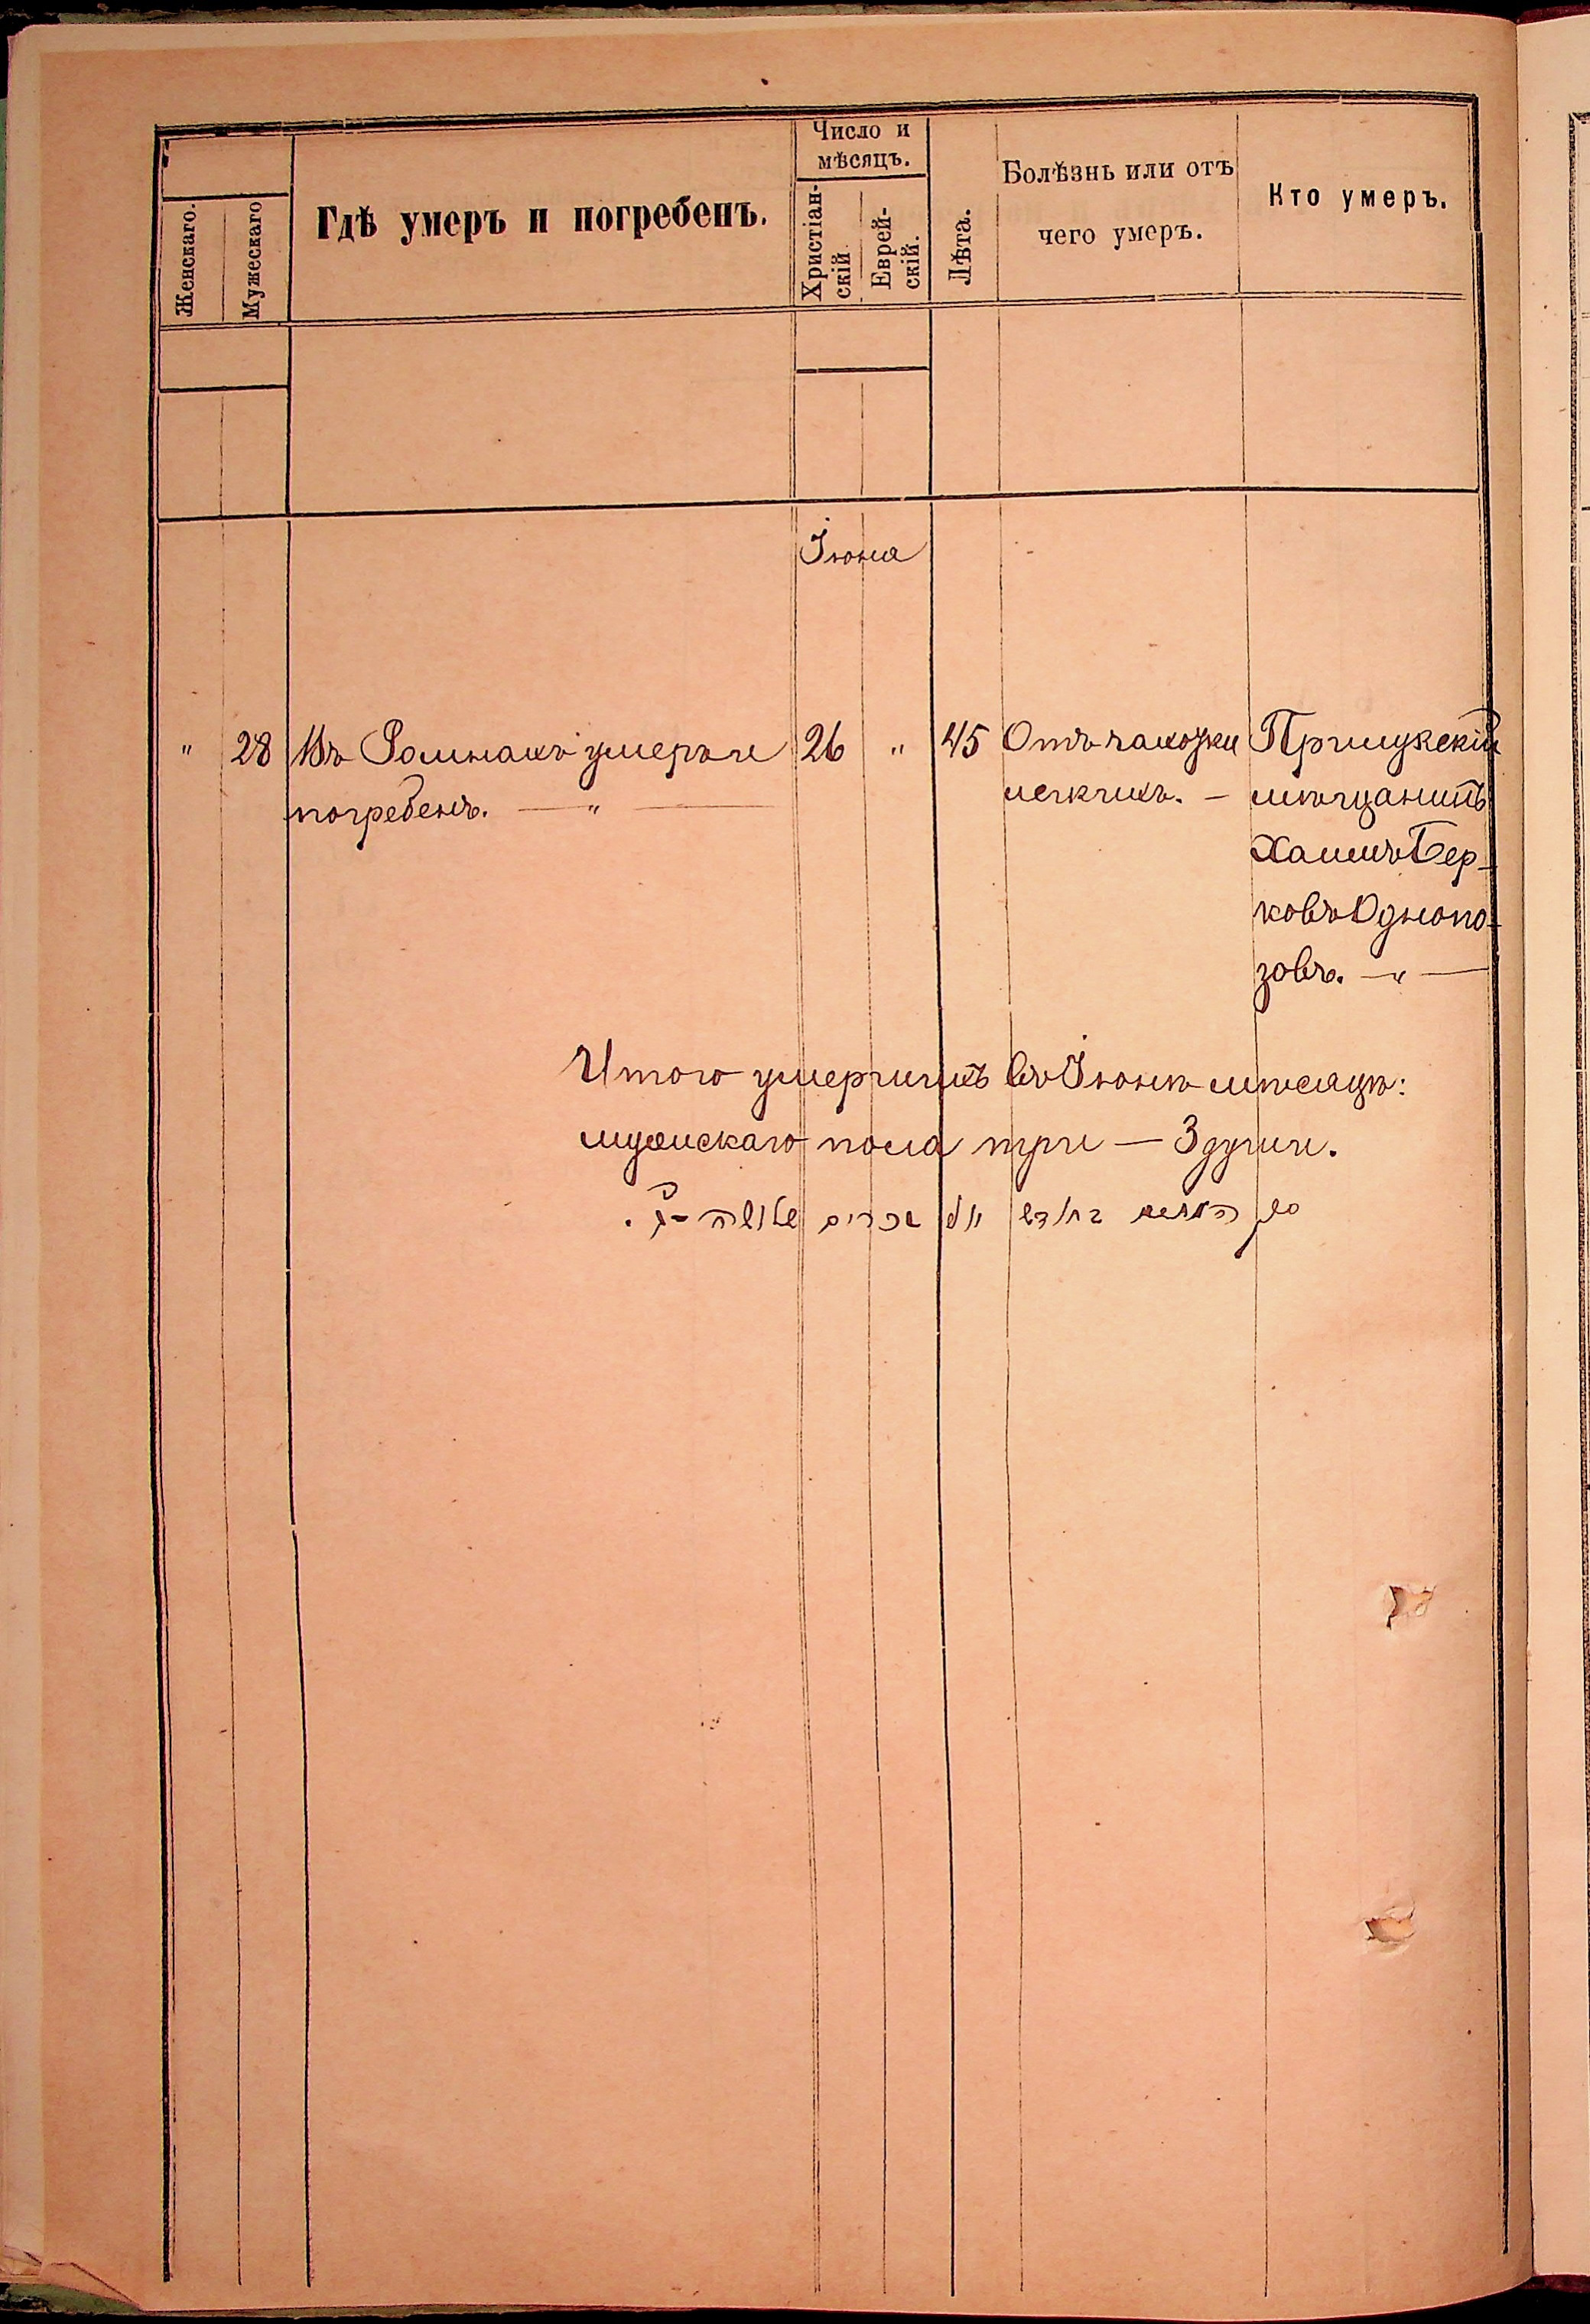 Число и
мѣсяцъ.
Женскаго.
Мужескаго
Гдѣ умеръ и погребенъ.
Христіан-
скій.
Еврей-
скій.
Лѣта.
Болѣзнь или отъ
чего умеръ.
Кто умеръ.
Іюня
" 28 Въ Ромнахъ умеръ и 26 " 45 Отъ чахотки Прилукскій
погребенъ. — " — легкихъ. — мѣщанинъ
Хаимъ Бер-
ковъ Однопо-
зовъ. — " —
Итого умершихъ въ Іюнѣ мѣсяцѣ:
мужескаго пола три — 3 души.